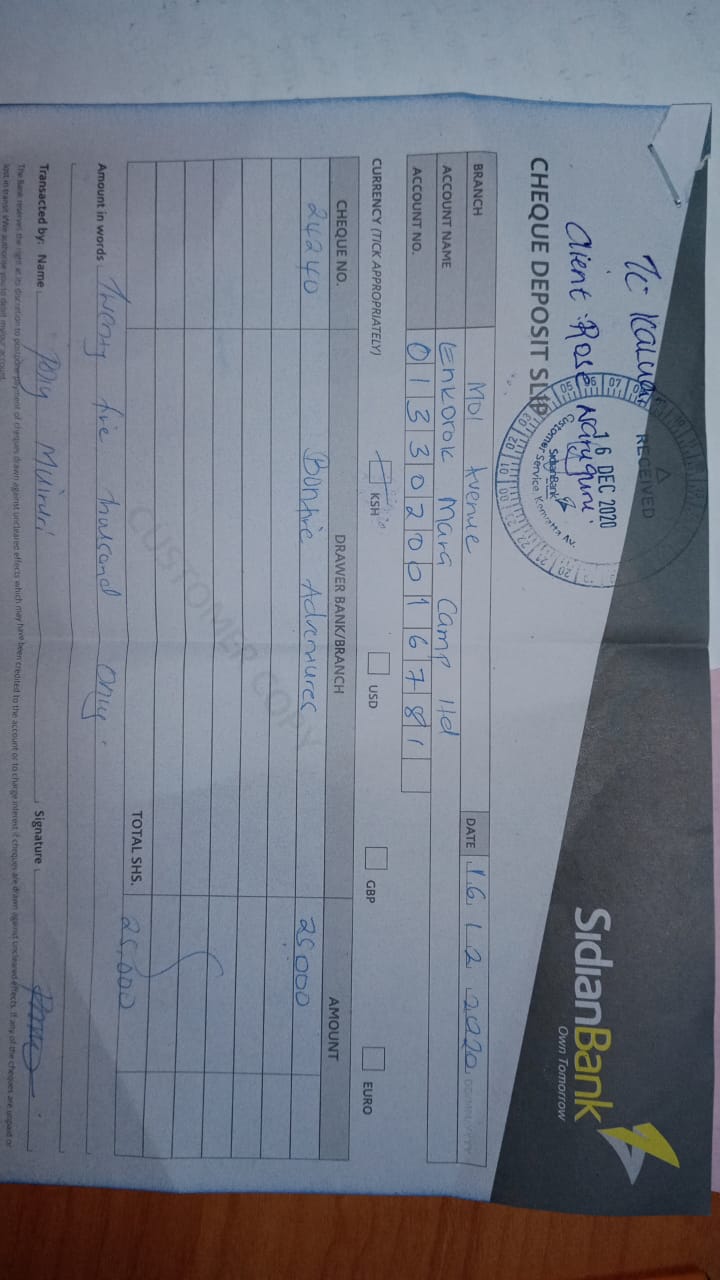 Client: Rose
RECEIVED
16 DEC 2020
SidianBank
Customer Service Kenyatta Av.
SidianBank
Own Tomorrow
CHEQUE DEPOSIT SLIP
BRANCH Moi Avenue DATE 16 12 2020
ACCOUNT NAME Enkorok Mara Camp Ltd
ACCOUNT NO. 0133020016781
CURRENCY (TICK APPROPRIATELY) KSH USD GBP EURO
CHEQUE NO. DRAWER BANK/BRANCH AMOUNT
24240 Bonfire Adventures 25000
TOTAL SHS. 25,000
CUSTOMER COPY
Amount in words Twenty five thousand only.
Transacted by: Name Polly Muindri Signature
The Bank reserves the right at its discretion to postpone payment of cheques drawn against uncleared effects which may have been credited to the account or to charge interest if cheques are drawn against uncleared effects. If any of the cheques are unpaid or
lost in transit I/We authorise you to debit my/our account.